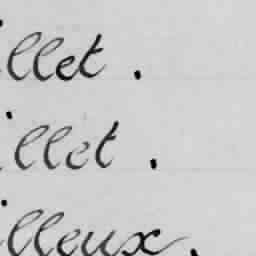 illet.
illet.
illeux.